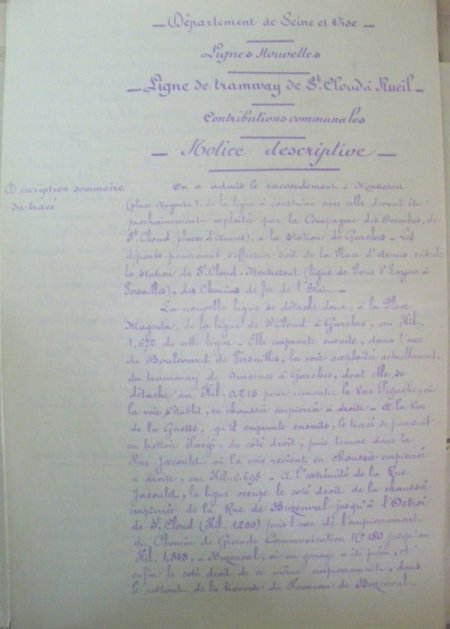 Département de Seine et Oise
Lignes Nouvelles
Ligne de tramway de St Cloud à Rueil
Contributions communales
Notice descriptive
Description sommaire
du tracé
On a admis le raccordement à Montretout
(place Magenta), de la ligne à construire avec celle devant être
prochainement exploitée par la Compagnie des Omnibus, de
St Cloud (place d'Armes), à la station de Garches – Les
départs pourraient s'effectuer soit de la Place d'Armes soit de
la station de St Cloud-Montretout (ligne de Paris St Lazare à
Versailles), des Chemins de fer de l'État –
La nouvelle ligne se détache donc, à la Place
Magenta, de la ligne de St Cloud à Garches, au Kil.
1.672 de cette ligne – Elle emprunte ensuite, dans l'axe
du Boulevard de Versailles, la voie exploitée actuellement
du tramway de Suresnes à Garches, dont elle se
détache au Kil. 0.215 pour remonter la Rue Pigache, où
la voie s'établit, en chaussée empierrée à droite – A la Rue
de la Guette, qu'il emprunte ensuite, le tracé se poursuit
en trottoir élargi, du côté droit, puis tourne dans la
Rue Jacoulet où la voie revient en chaussée empierrée
à droite, au Kil. 0.698 – A l'extrémité de la Rue
Jacoulet, la ligne occupe le côté droit de la chaussée
empierrée de la Rue de Buzenval jusqu'à l'Octroi
de St Cloud (Kil. 1.200) puis l'axe de l'empierrement
du Chemin de Grande Communication No 180 jusqu'au
Kil. 1,888, à Buzenval, où un garage a été prévu, et
enfin le côté droit de ce même empierrement, dans
le restant de la traverse du Hameau de Buzenval.